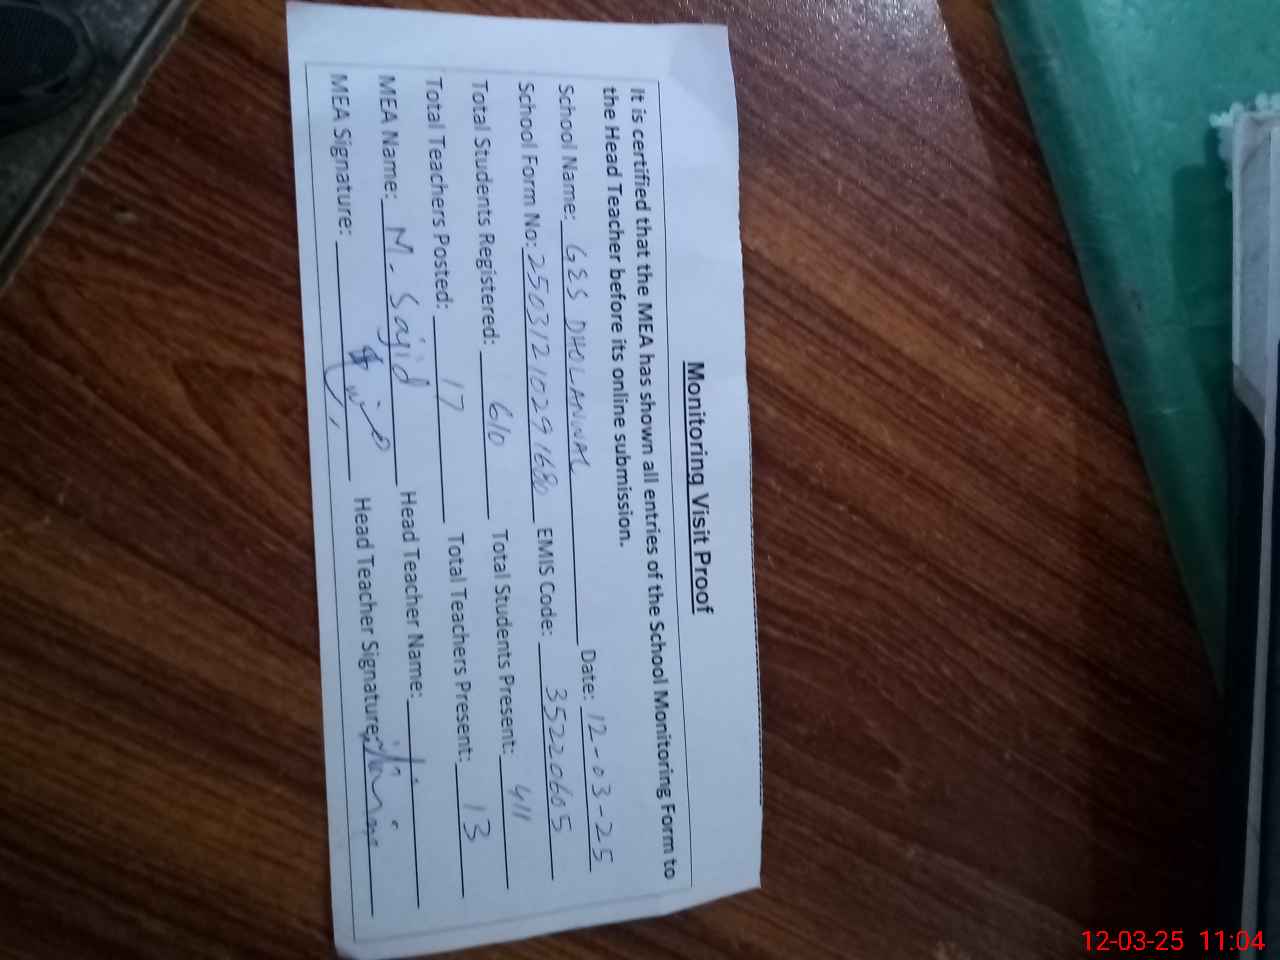 Monitoring Visit Proof
It is certified that the MEA has shown all entries of the School Monitoring Form to
the Head Teacher before its online submission.
School Name: GES DHOLANWAL Date: 12-03-25
School Form No: 2503121029168 EMIS Code: 35220605
Total Students Registered: 610 Total Students Present: 411
Total Teachers Posted: 17 Total Teachers Present: 13
MEA Name: M. Sajid Head Teacher Name:
MEA Signature: Head Teacher Signature:
12-03-25 11:04